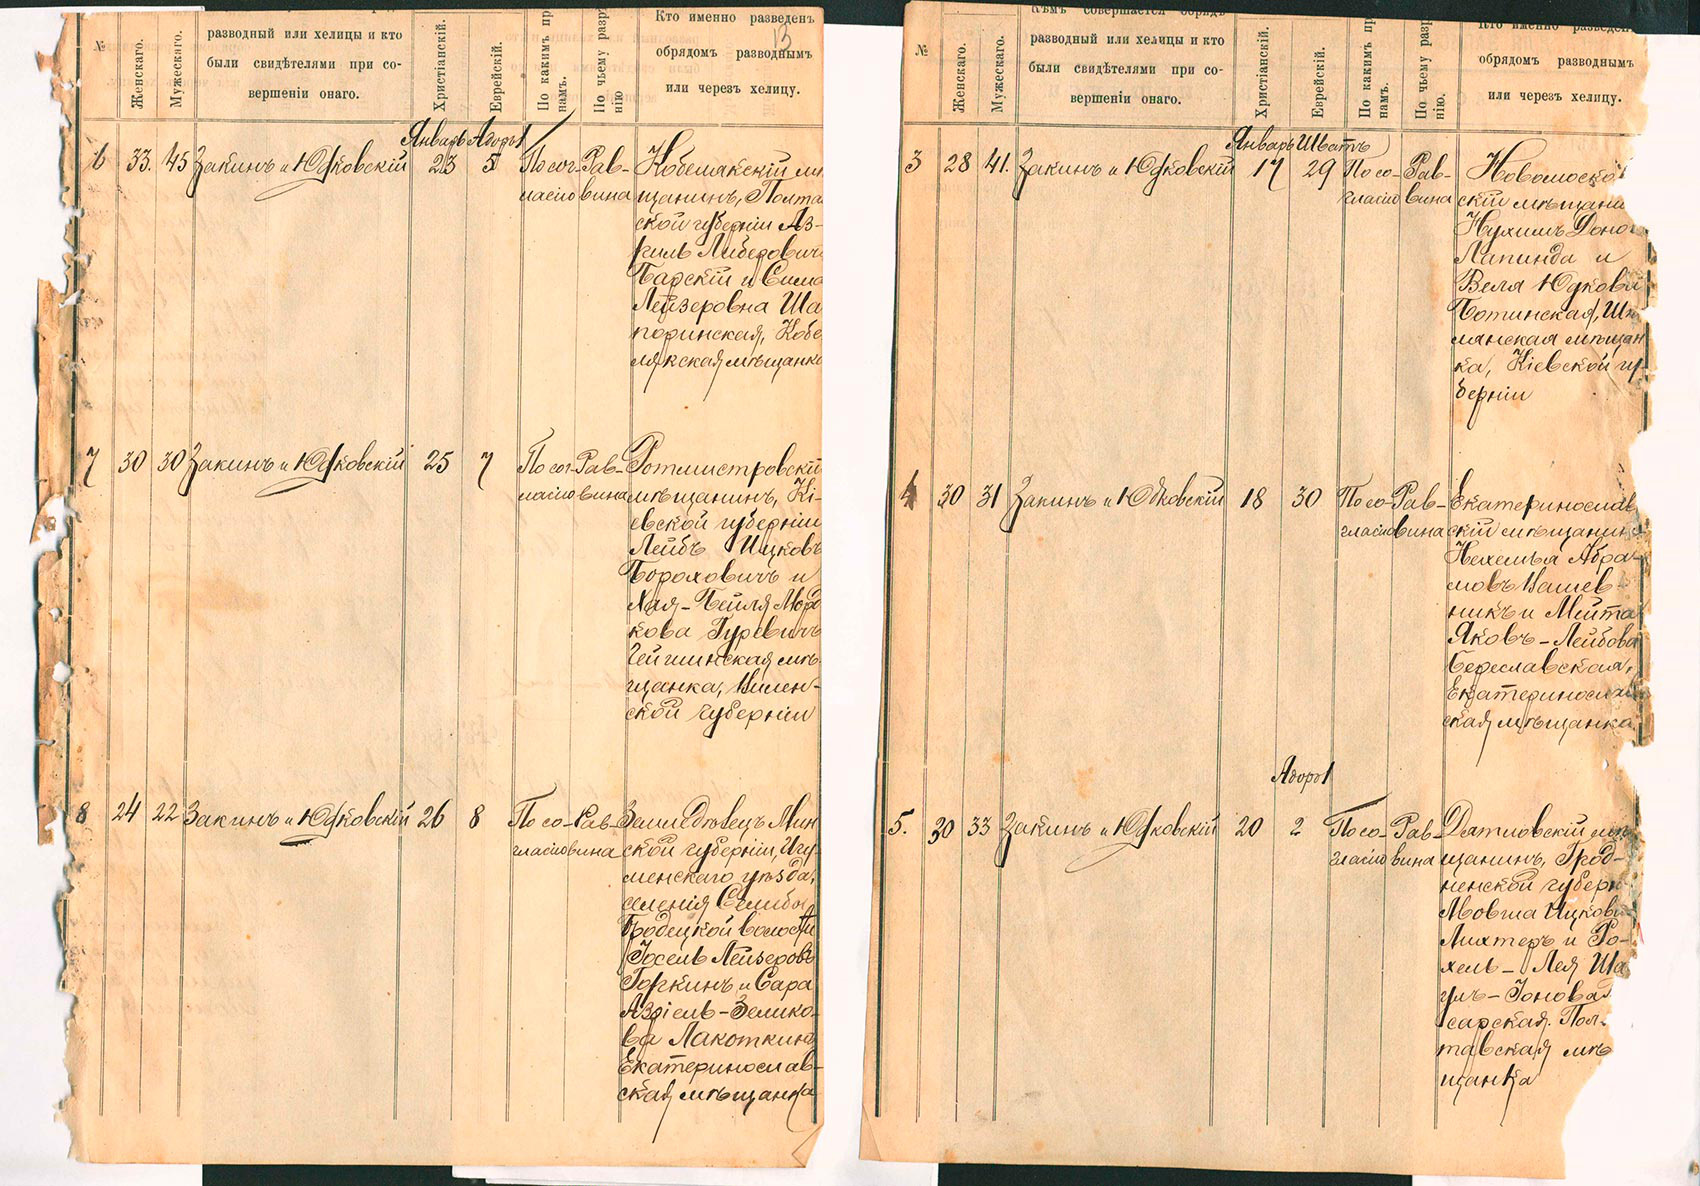 №
Женскаго.
Мужескаго.
разводный или хелицы и кто
были свидѣтелями при со-
вершеніи онаго.
Христіанскій.
Еврейскій.
По какимъ пр
намъ.
По чьему разр
нію
Кто именно разведенъ
обрядомъ разводнымъ
или черезъ хелицу.
13
Январь Адоръ 1
6 33. 45 Закинъ и Юдковскій 23 5 По сог- Рав-
ласію вина
Кобелякскій мѣ
щанинъ, Полта
ской губерніи Аз-
риль Либеровичъ
Барскій и Сима
Лейзеровна Ша
поринская, Кобе
лякская мѣщанка
7 30 30 Закинъ и Юдковскій 25 7 По сог- Рав-
ласію вина
Ротмистровскій
мѣщанинъ, Кі-
евской губерніи
Лейбъ Ицковъ
Бороховичъ и
Хая-Бейля Морд
кова Гуревичъ
мѣ-
щанка, Вилен-
ской губерніи
8 24 22 Закинъ и Юдковскій 26 8 По со- Рав-
гласію вина
Земледѣлецъ Мин
ской губерніи, Игу-
менскаго уѣзда,
селенія Селиба
Бродецкой волости
Іосель Лейзеровъ
Горкинъ и Сара
Азріель-Зелико-
ва Лакоткина
Екатеринослав-
ская мѣщанка
№
Женскаго.
Мужескаго.
Кѣмъ совершается обрядъ
разводный или хелицы и кто
были свидѣтелями при со-
вершеніи онаго.
Христіанскій.
Еврейскій.
По какимъ пр
намъ.
По чьему разр
нію.
Кто именно разведен
обрядомъ разводнымъ
или черезъ хелицу.
Январь Шватъ
3 28 41. Закинъ и Юдковскій 17 29 По со- Рав-
гласію вина
Новомоско
скій мѣщани
Нухимъ Доно
Лапинда и
Веля Юдкова
Ботинская, Шп
лянская мѣщан
ка, Кіевской гу-
берніи
4 30 31 Закинъ и Юдковскій 18 30 По со- Рав-
гласію вина
Екатеринослав
скій мѣщанинъ
Нехемья Абра-
мовъ Вашев-
никъ и Мейта
Яковъ-Лейбова
Береславская,
Екатеринослав
ская мѣщанка
Адоръ 1
5. 30 33 Закинъ и Юдковскій 20 2 По со- Рав-
гласію вина
Дятловскій мѣ
щанинъ, Грод-
ненской губерн
Мовша Ицкови
Лихтеръ и Ро-
хель-Лея Ша
улъ-Іонова
сарская. Пол-
тавская мѣ
щанка